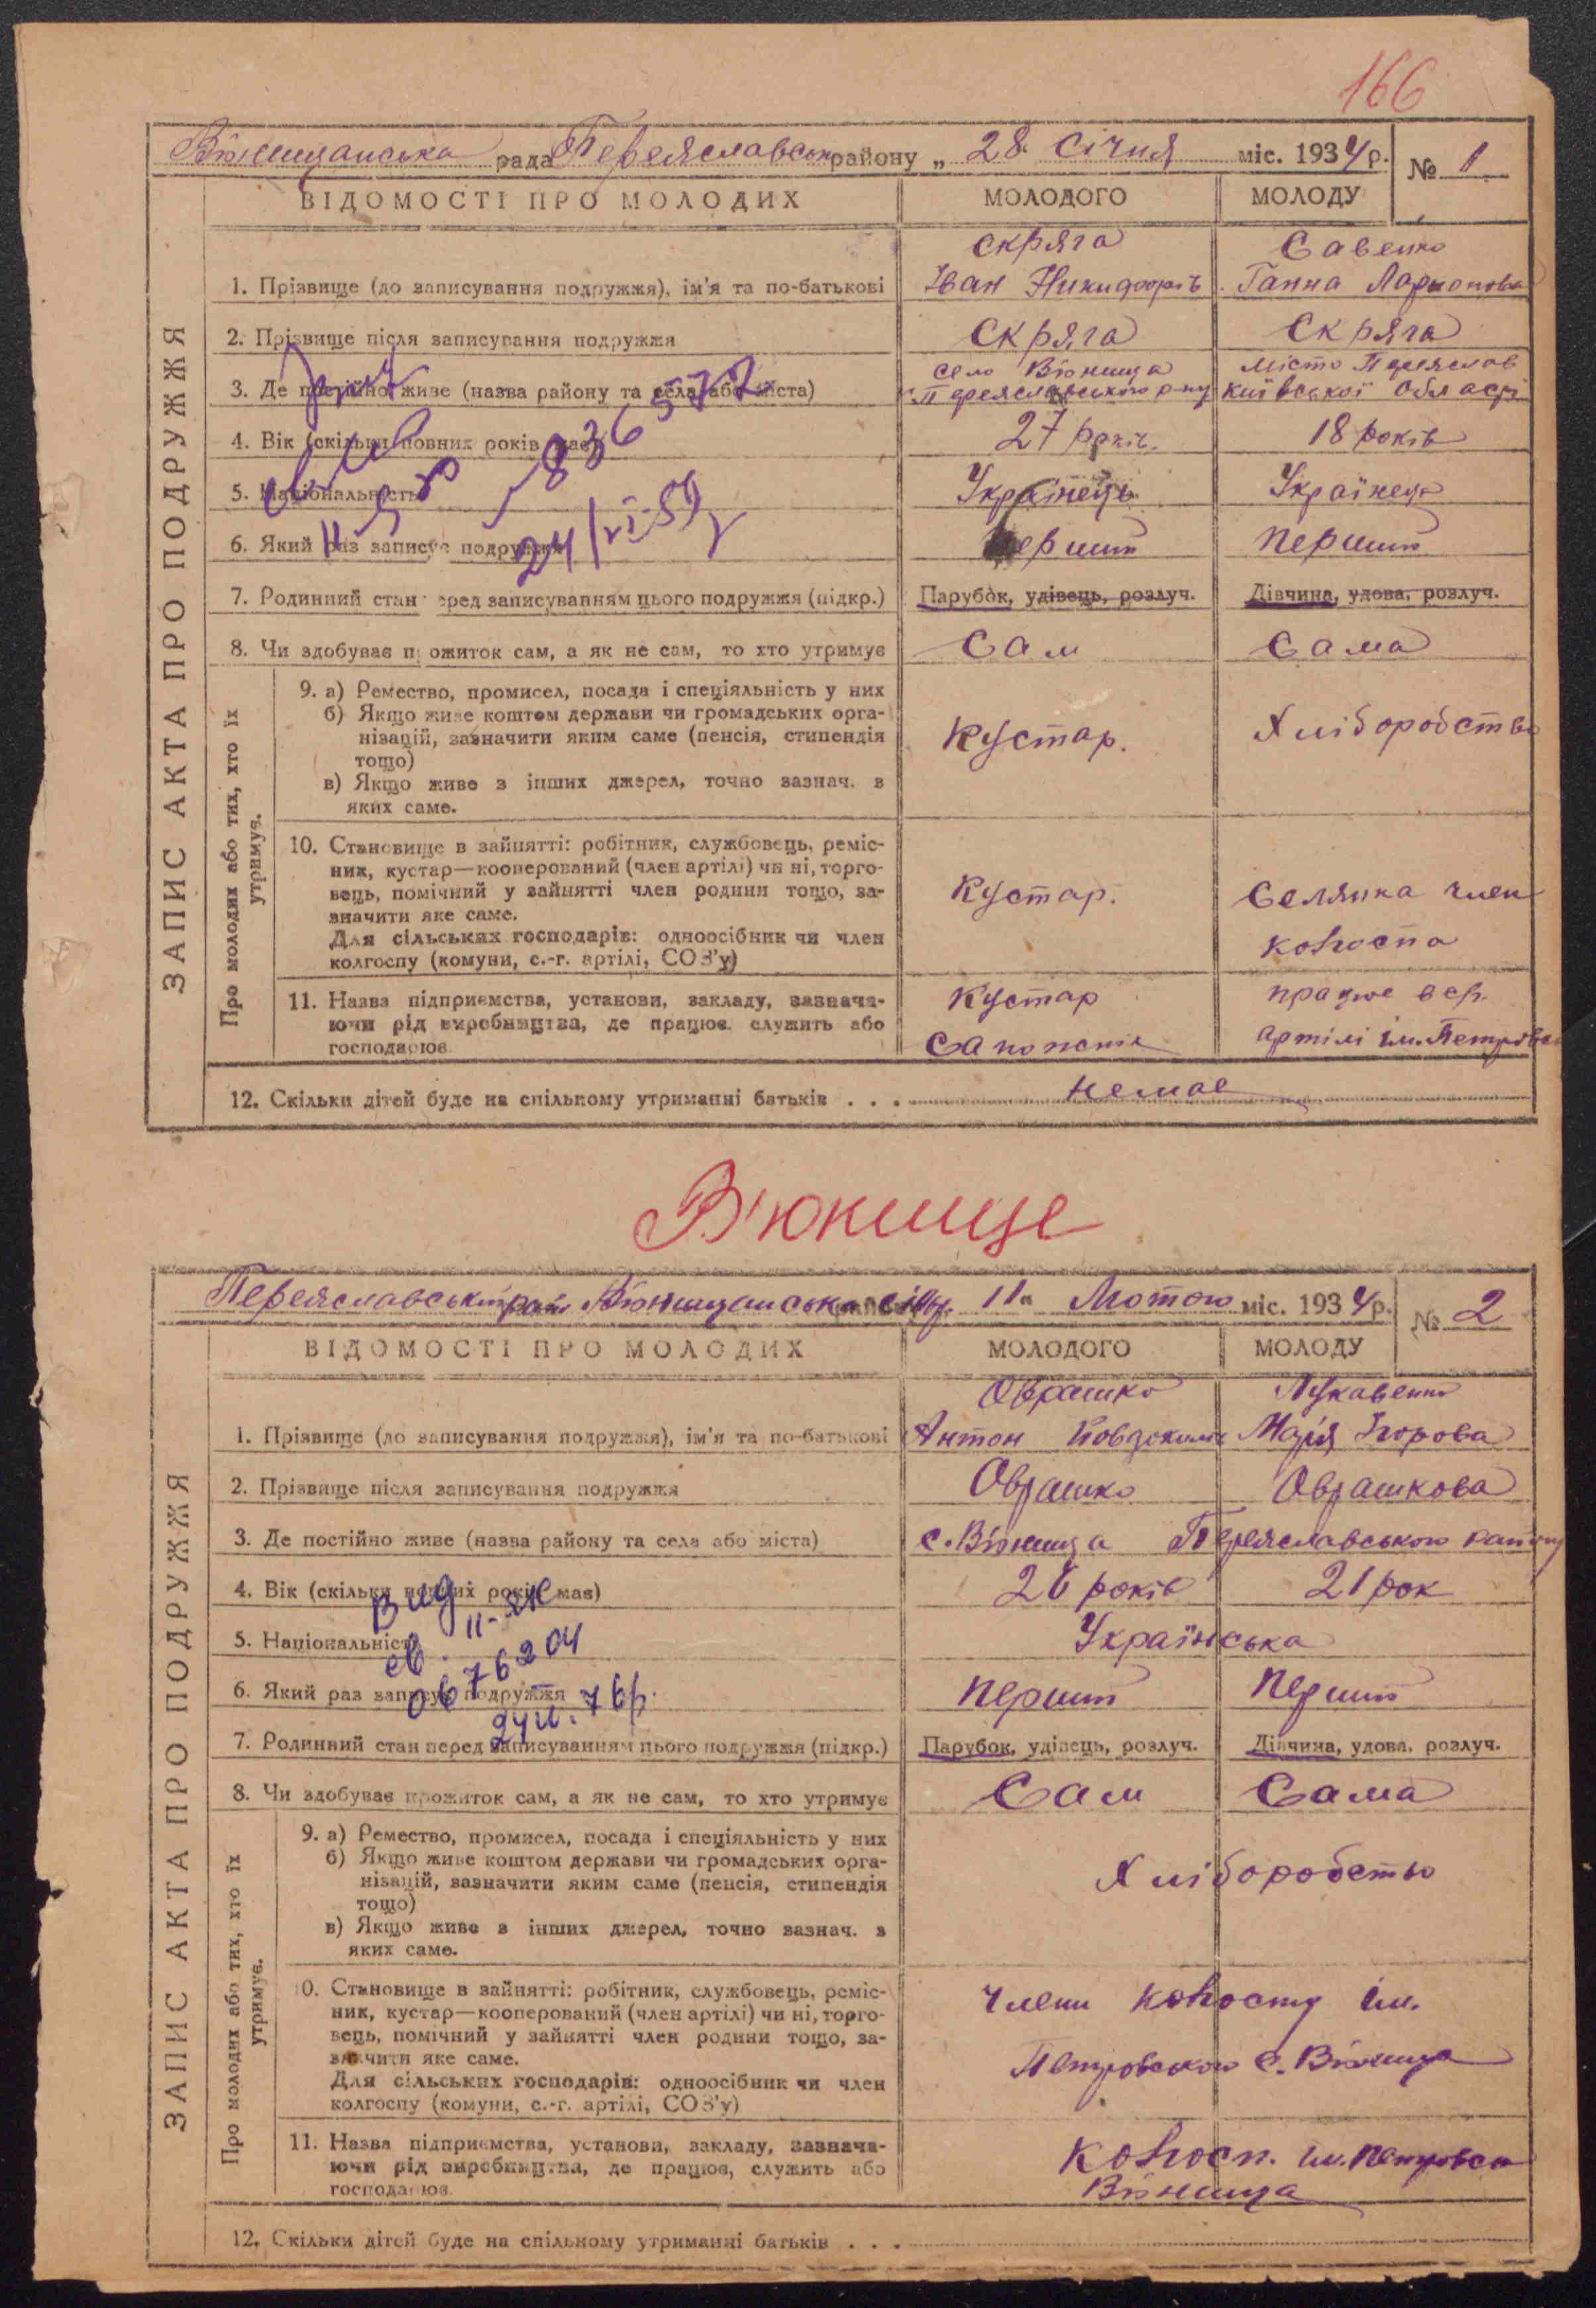 166
Вьюнищанська рада Переяславськ району „ 28 Січня міс. 1934 р. № 1
ЗАПИС АКТА ПРО ПОДРУЖЖЯ
ВІДОМОСТІ ПРО МОЛОДИХ МОЛОДОГО МОЛОДУ
Скряга Савенко
1. Прізвище (до записування подружжя), ім'я та по-батькові Іван Никифорів Ганна Ларионова
2. Прізвище після записування подружжя Скряга Скряга
село Вьюнища місто Переяслав
3. Де постійно живе (назва району та села або міста) Переяславського р-ну Київської Області
4. Вік (скільки повних років має) 27 років 18 років
5. Національність Українець Українець
6. Який раз записує подружжя перший перший
836572
24/VI-59
7. Родинний стан перед записуванням цього подружжя (підкр.) Парубок, удівець, розлуч. Дівчина, удова, розлуч.
8. Чи здобуває прожиток сам, а як не сам, то хто утримує Сам Сама
Про молодих або тих, хто їх утримує.
9. а) Ремество, промисел, посада і спеціяльність у них
б) Якщо живе коштом держави чи громадських орга-
нізацій, зазначити яким саме (пенсія, стипендія Кустар. Хліборобство
тощо)
в) Якщо живе з інших джерел, точно зазнач. з
яких саме.
10. Становище в зайнятті: робітник, службовець, реміс-
ник, кустар—кооперований (член артілі) чи ні, торго-
вець, помічний у зайнятті член родини тощо, за- Кустар. Селянка член
значити яке саме.
Для сільських господарів: одноосібник чи член колгоспа
колгоспу (комуни, с.-г. артілі, СОЗ'у)
11. Назва підприємства, установи, закладу, зазнача- Кустар працює в с/г.
ючи рід виробництва, де працює, служить або Сапожник артілі ім. Петровс
господарює
12. Скільки дітей буде на спільному утриманні батьків . . . немає
Вьюнище
Переяславський рай Вьюнищанська сільр. 11" Лютого міс. 1934 р. № 2
ЗАПИС АКТА ПРО ПОДРУЖЖЯ
ВІДОМОСТІ ПРО МОЛОДИХ МОЛОДОГО МОЛОДУ
Оврашко Лукавенко
1. Прізвище (до записування подружжя), ім'я та по-батькові Антон Марія Ігорова
2. Прізвище після записування подружжя Оврашко Оврашкова
3. Де постійно живе (назва району та села або міста) с. Вьюнища Переяславського району
4. Вік (скільки повних років має) 26 років 21 рок
Вид
5. Національність Українська
св.
6. Який раз записує подружжя перший перший
0676204
24 II. 76р.
7. Родинний стан перед записуванням цього подружжя (підкр.) Парубок, удівець, розлуч. Дівчина, удова, розлуч.
8. Чи здобуває прожиток сам, а як не сам, то хто утримує Сам Сама
Про молодих або тих, хто їх утримує.
9. а) Ремество, промисел, посада і спеціяльність у них
б) Якщо живе коштом держави чи громадських орга-
нізацій, зазначити яким саме (пенсія, стипендія Хліборобство
тощо)
в) Якщо живе з інших джерел, точно зазнач. з
яких саме.
10. Становище в зайнятті: робітник, службовець, реміс-
ник, кустар—кооперований (член артілі) чи ні, торго- члени колгоспу ім.
вець, помічний у зайнятті член родини тощо, за-
значити яке саме. Петровського с. Вьюнища
Для сільських господарів: одноосібник чи член
колгоспу (комуни, с.-г. артілі, СОЗ'у)
11. Назва підприємства, установи, закладу, зазнача-
ючи рід виробництва, де працює, служить або колгосп. ім. Петровск
господарює Вьюнища
12. Скільки дітей буде на спільному утриманні батьків . . .